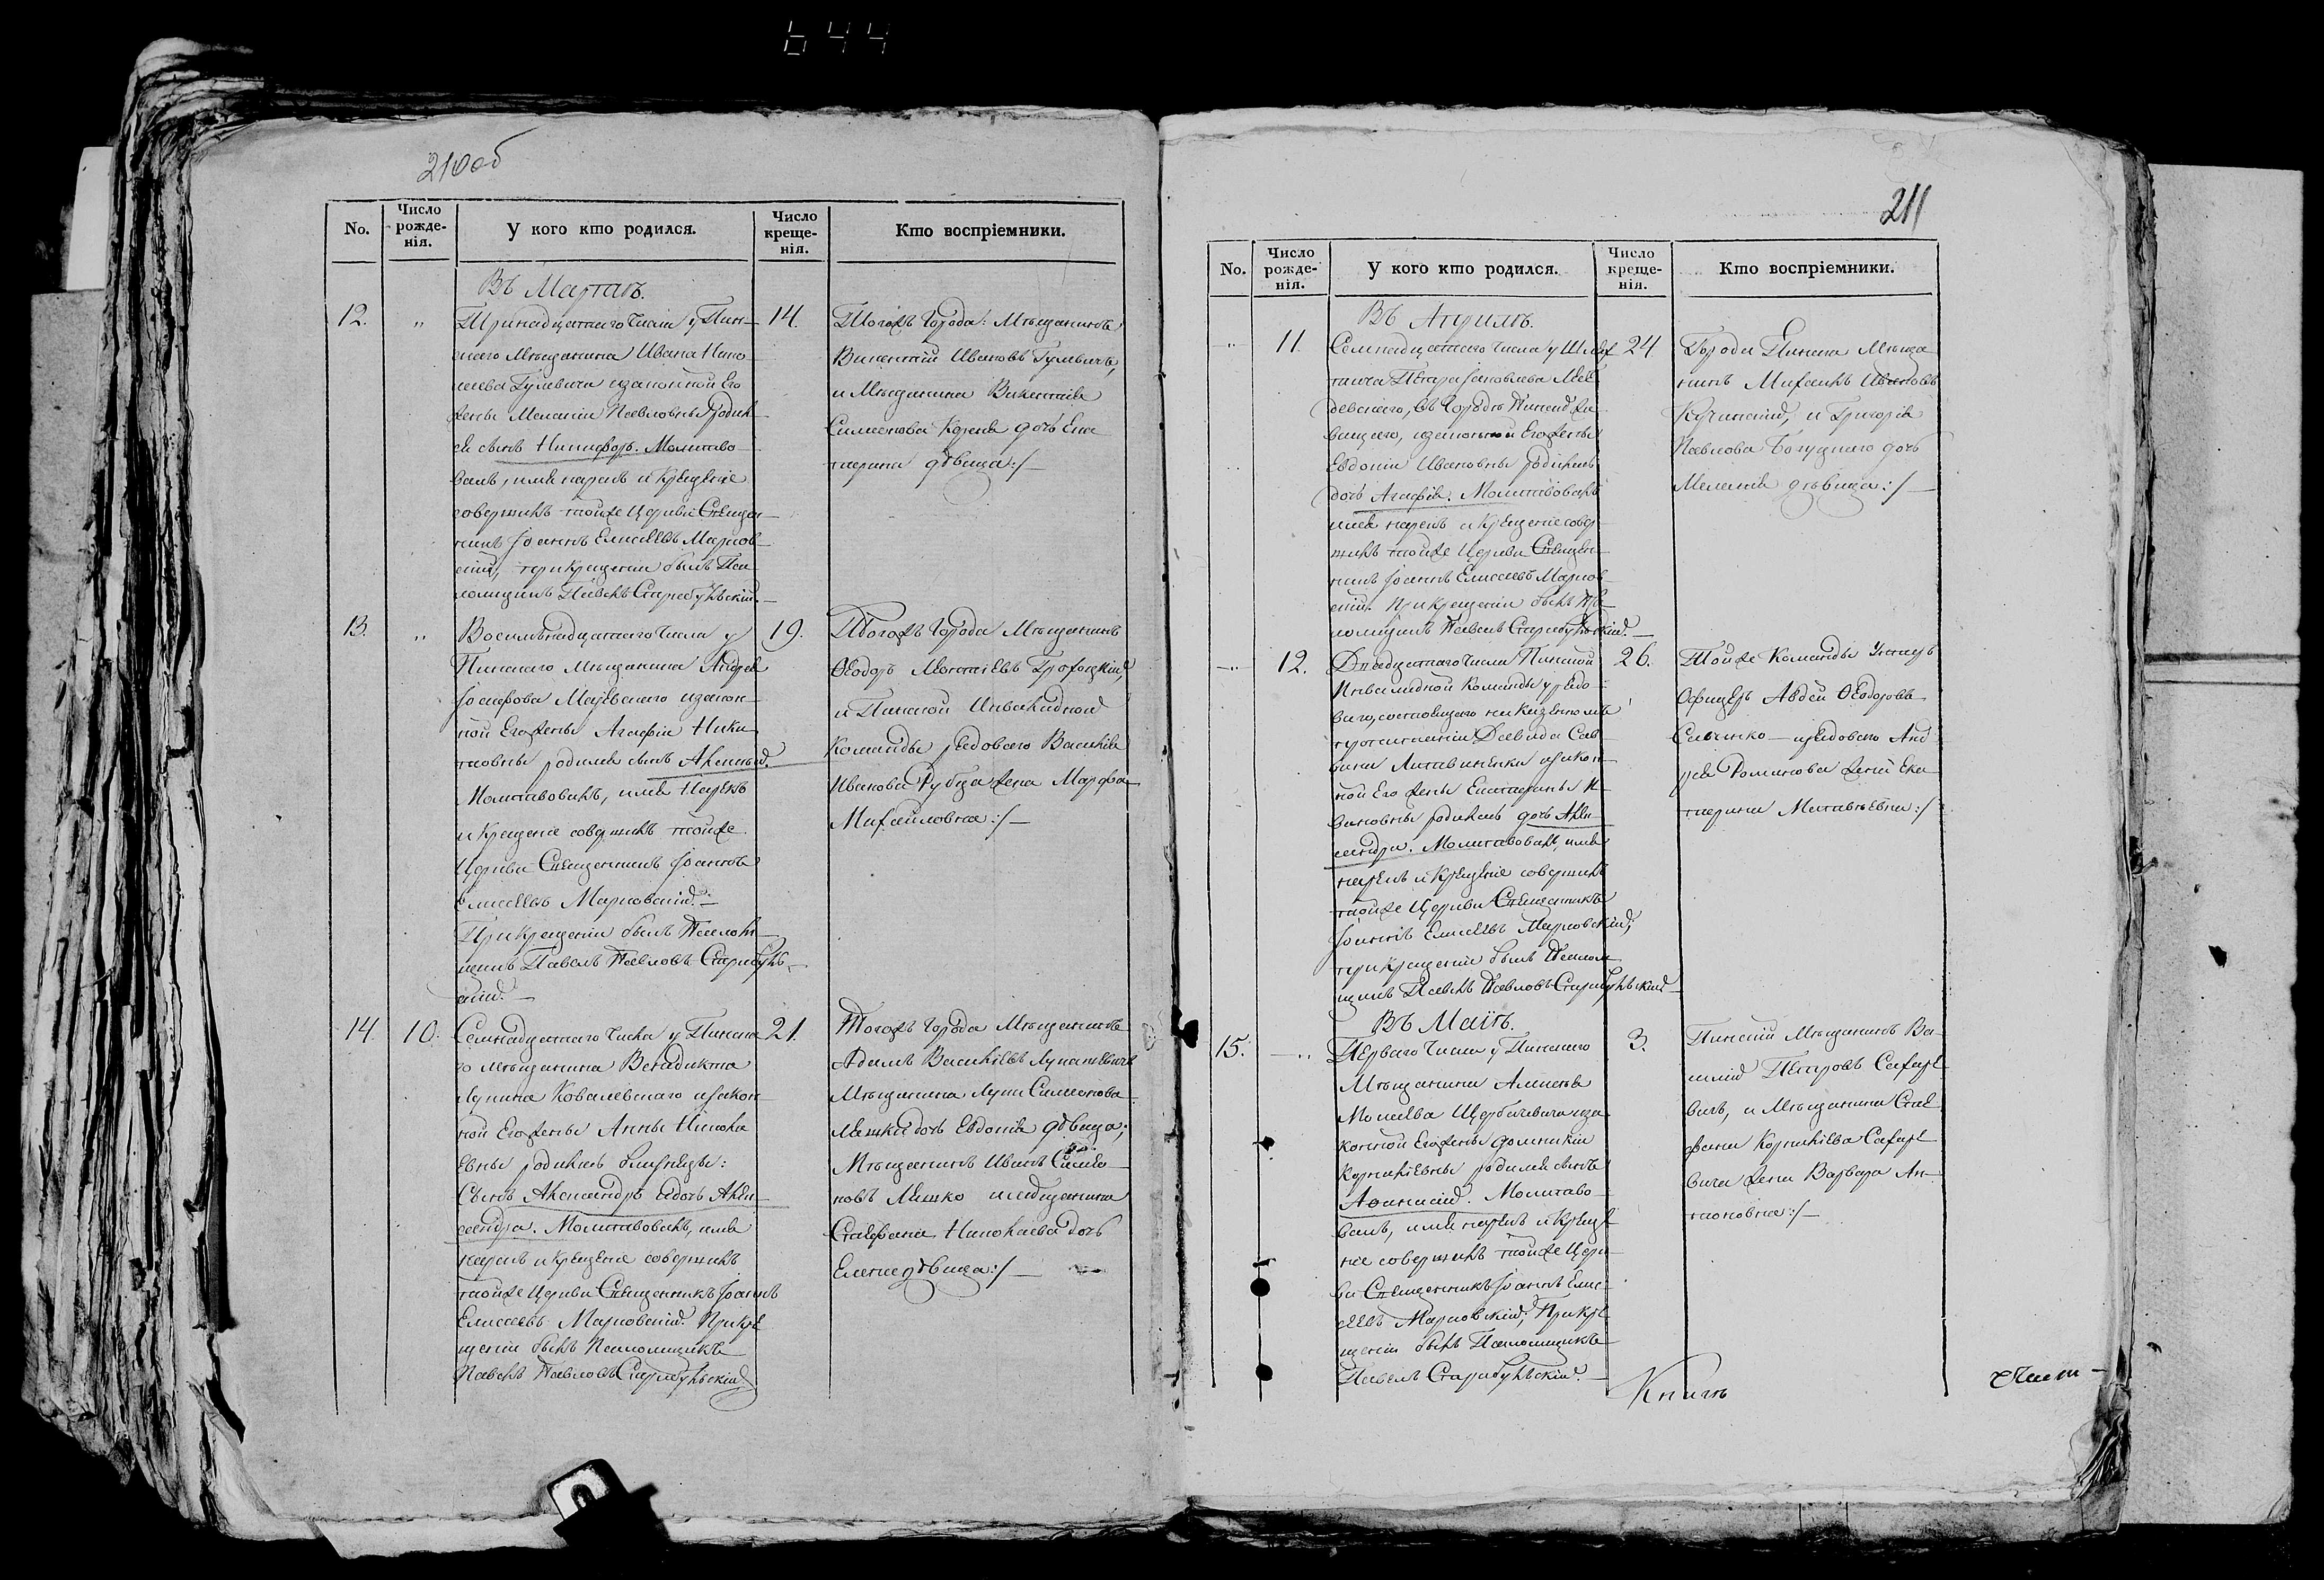 644
210об
No.
Число рожде-нія.
У кого кто родился.
Число креще-нія.
Кто воспріемники.
Въ Мартѣ.
12.
"
Тринадцатаго числа у Пин-
скаго Мѣщанина Ивана Нико
лаева Гулевича изаконной Его
жены Меланіи Павловны Родил
ся сынъ Никифоръ. Молитво
валъ, имя нарекъ и Крещеніе
совершилъ тойже Церкви Священ
никъ Іоаннъ Елисеевъ Марков
скій, при крещеніи былъ Пса
ломщикъ Павелъ
14.
Тогожъ Города: Мѣщанинъ
Викентій Ивановъ Гулевичъ,
и Мѣщанина Викентія
Симеонова дочь Ека
терина дѣвица:/—
13.
"
Восемьнадцатаго числа у
Пинскаго Мѣщанина Андрея
Іосифова изакон
ной Его жены Агафіи Ники
товны родился сынъ Алексѣй.
Молитвовалъ, имя Нарекъ
и Крещеніе совершилъ тойже
Церкви Священникъ Іоаннъ
Елисеевъ Марковскій.—
При крещеніи былъ Псалом
щикъ Павелъ Павловъ
скій.—
19.
Тогожъ Города Мѣщанинъ
Ѳеодоръ
и Пинской Инвалидной
Команды рядоваго Василія
Иванова жена Марфа
Михайловна:/—
14.
10.
Семнадцатаго числа у Пинска
го мѣщанина Венадикта
Лукина Ковалевскаго изакон
ной Его жены Анны Никола
евны родились близнецы:
Сынъ Александръ идочь Алек
сандра. Молитвовалъ, имя
нарекъ и крещеніе совершилъ
тойже Церкви Священникъ Іоаннъ
Елисеевъ Марковскій. При кре
щеніи былъ Псаломщикъ
Павелъ Павловъ
21.
Тогожъ Города Мѣщанинъ
Адамъ Васильевъ Лукашевичъ
Мѣщанина Луки Симеонова
Ляшки дочь Евдокія дѣвица;
Мѣщанинъ Иванъ Симео
новъ Ляшко имѣщанина
Стефана Николаева дочь
Елена дѣвица:/—
211
No.
Число рожде-нія.
У кого кто родился.
Число креще-нія.
Кто воспріемники.
Въ Апрѣлѣ.
"
11.
Семнадцатаго числа у Шлях
тича Петра Яковлева
въ городѣ Пинскѣ жи
вущаго, изаконной Его жены
Евдокіи Ивановны родилась
дочь Агафія. Молитвовалъ
имя нарекъ и Крещеніе совер
шилъ тойже Церкви Священ
никъ Іоаннъ Елисеевъ Марков
скій. При крещеніи былъ Пса
ломщикъ Павелъ
24.
Города Пинска Мѣща
нинъ Михаилъ Ивановъ
и Григорія
Павлова дочь
Меланія дѣвица:/—
"
12.
Двадцатаго числа Пинской
Инвалидной Команды у рядо
ваго, состоящаго на казенномъ
пропитаніи Давида Сав
вина изакон
ной Его жены Екатерины И
вановны родилась дочь Алек
сандра. Молитвовалъ, имя
нарекъ и Крещеніе совершилъ
тойже Церкви Священникъ
Іоаннъ Елисеевъ Марковскій;
при крещеніи былъ Псалом
щикъ Павелъ Павловъ
26.
Тойже Команды Унтеръ
Офицеръ Авдей Ѳеодоровъ
ирядоваго Анд
рея Романова жена Ека
терина Матвѣевна:/—
Въ Маіѣ.
15.
"
Перваго числа у Пинскаго
Мѣщанина
Моисеева иза
конной Его жены Домникіи
Корнильевны родился сынъ
Аѳанасій. Молитво
валъ, имя нарекъ и Креще
ніе совершилъ тойже Церк
ви Священникъ Іоаннъ Ели
сеевъ Марковскій; При кре
щеніи былъ Псаломщикъ
Павелъ
3.
Пинскій Мѣщанинъ Ва
силій Петровъ
вичъ, и Мѣщанина Сте
фана Корнильева
вича жена Варвара Ан
тоновна:/—